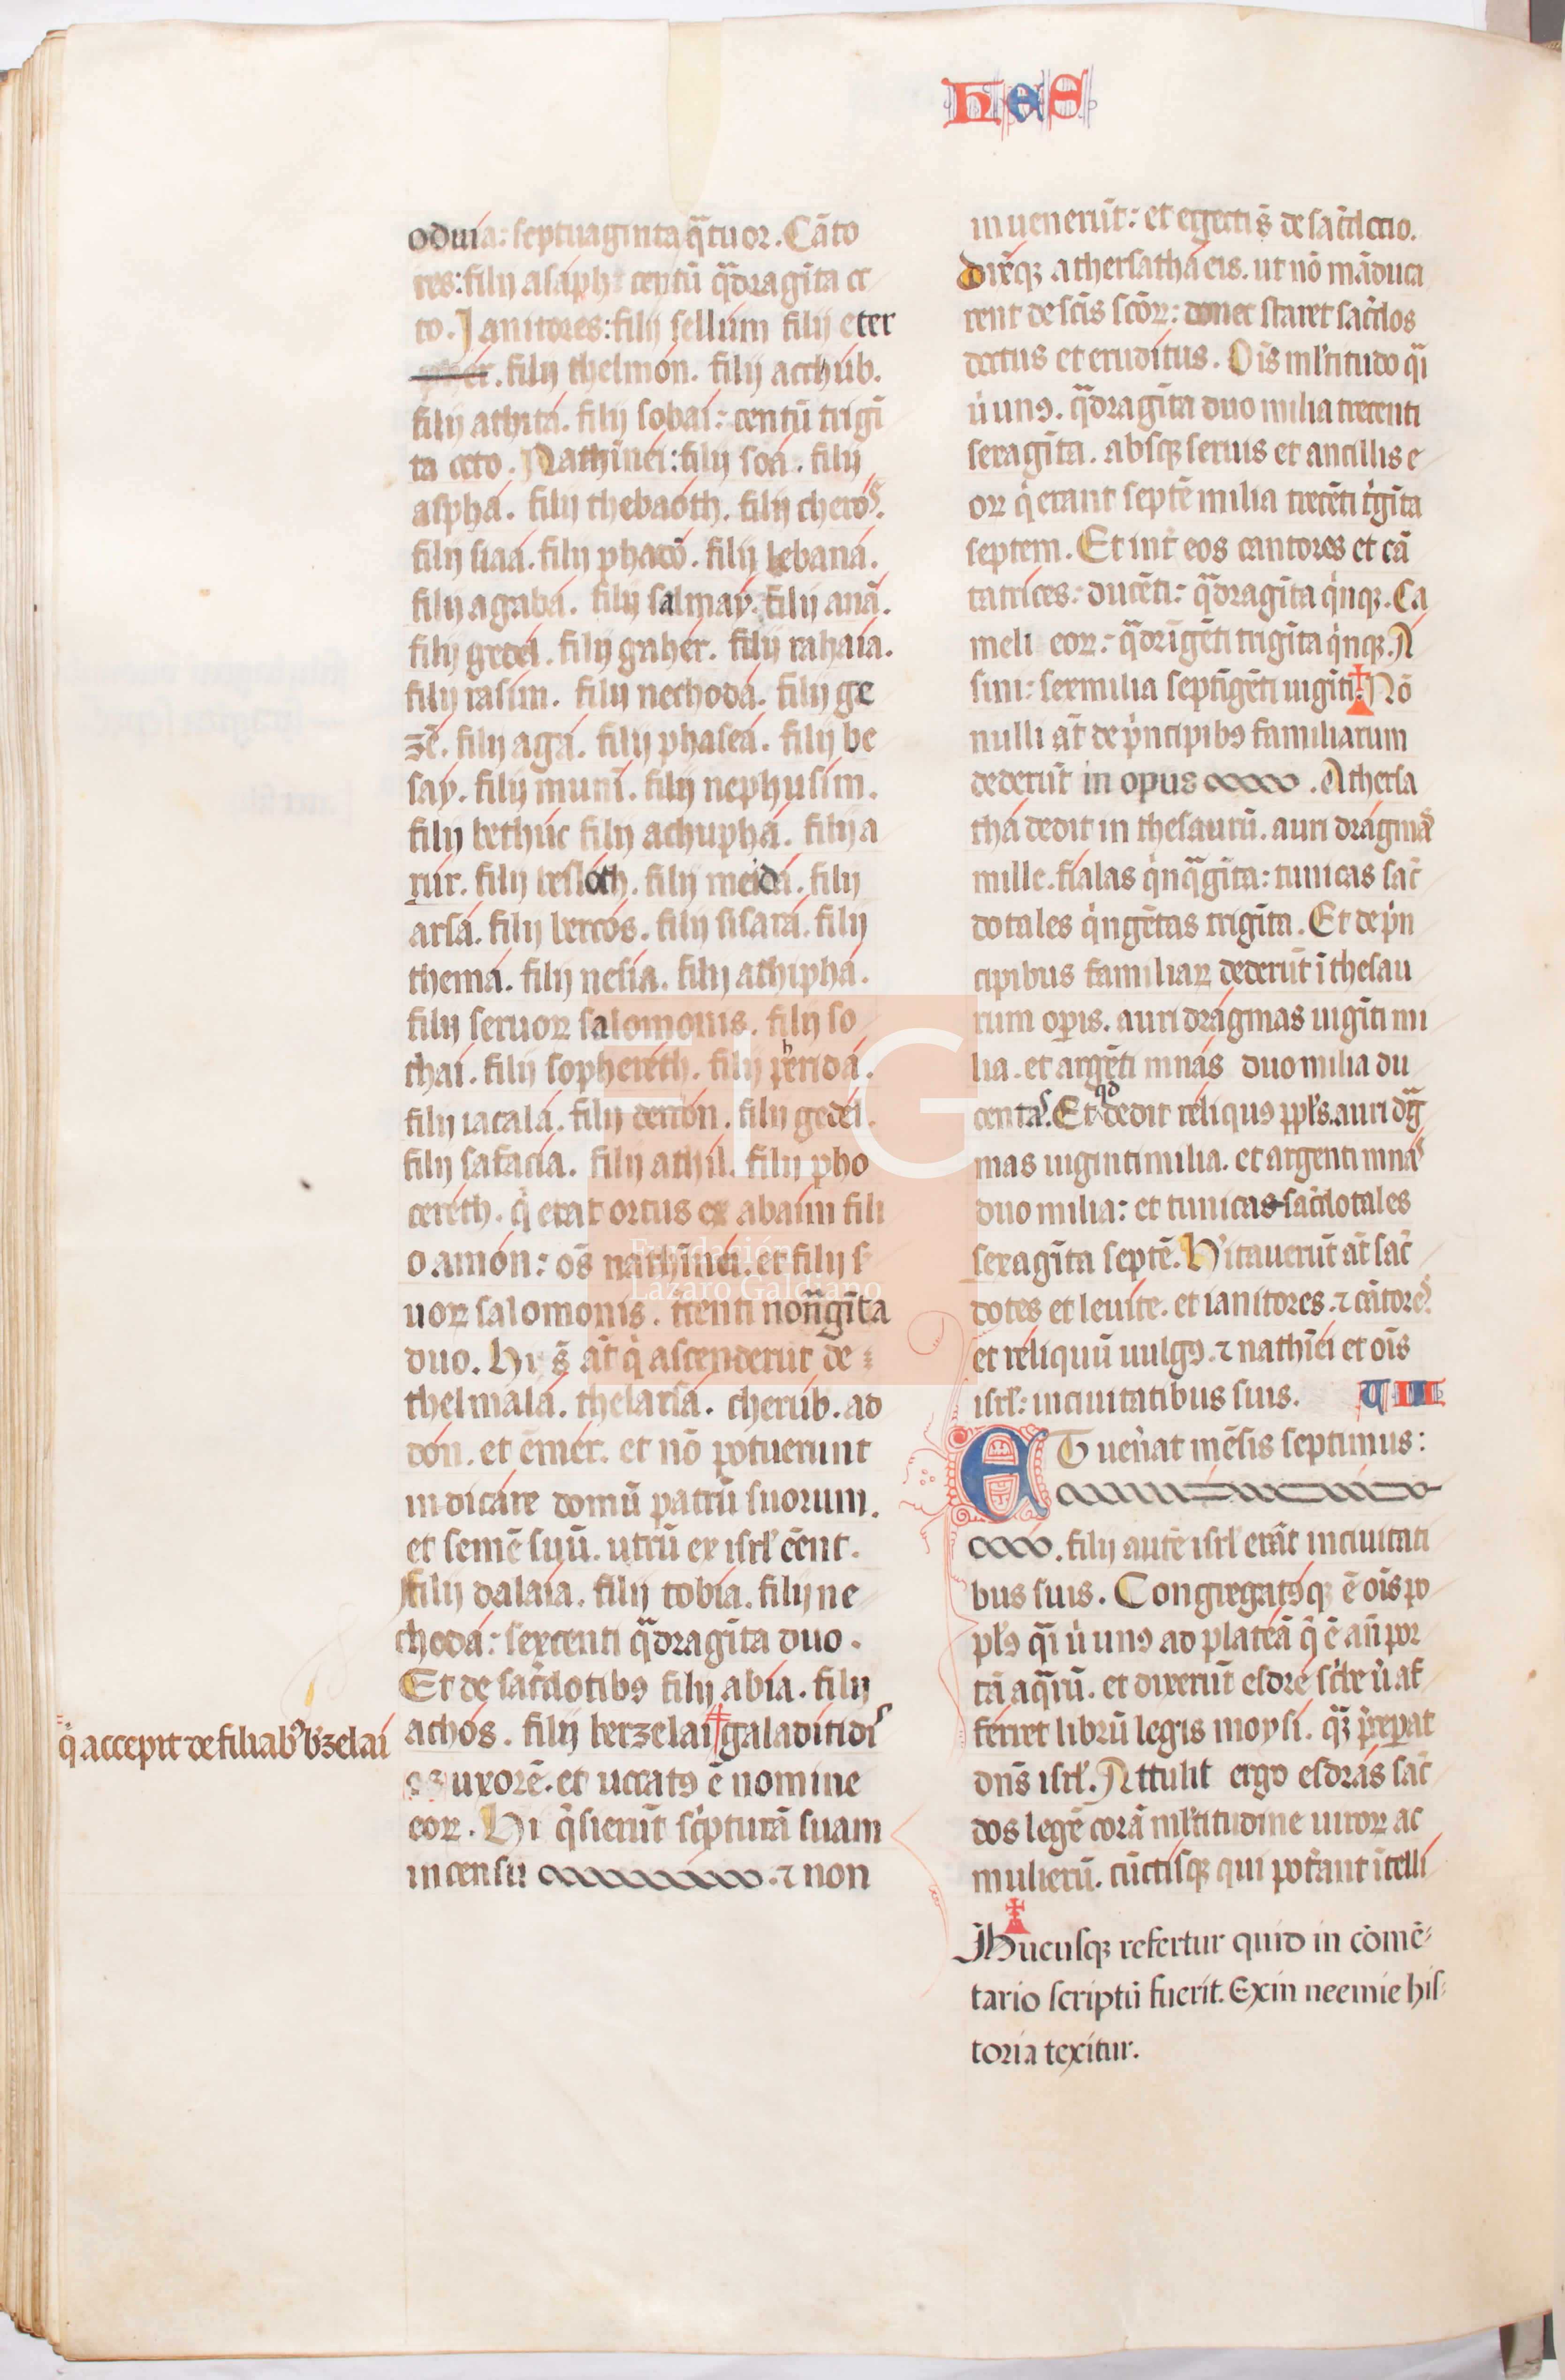 hes
oduia: septuaginta q̃tuor. Cãto
res: filij asaph: centũ q̃dragĩta oc
to. Janitores: filij sellum filij eter
filij thelmon. filij acchub.
filij athita. filij sobai: centũ trigĩ
ta octo. Nathinei: filij soa. filij
aspha. filij thebaoth. filij cheros.
filij siaa. filij phado. filij lebana.
filij agaba. filij salmay. filij anã.
filij gedel. filij gaher. filij rahaia.
filij rasim. filij nechoda. filij ge
zẽ. filij aga. filij phasea. filij be
say. filij muni. filij nephusim.
filij bethuc filij achupha. filij a
rur. filij besloth. filij meida. filij
arsa. filij bercos. filij sisara. filij
thema. filij nesia. filij athipha.
filij seruoꝝ salomonis. filij so
thai. filij sophereth. filij pherida.
filij iacala. filij dercon. filij gedel.
filij safacia. filij athil. filij pho
cereth. q̇ erat ortus ex abaim fili
o amon: oẽs nathĩnei. et filij s
uoꝝ salomonis. trenti nonãgĩta
duo. Hi s̃ aũt q̇ ascenderũt de
thelmala. thelarsa. cherub. ad
don. et emer. et nõ potuerunt
indicare domũ patrũ suorum.
et semẽ suũ. utrũ ex isrł eẽnt.
filij dalaia. filij tobia. filij ne
choda: sexcenti q̃dragĩta duo.
Et de sac̃dotibꝰ filij abia. filij
achos. filij berzelai galaditidis
q̇ accepit de filiabꝰ b̃zelai
uxorẽ. et uocatꝰ ẽ nomine
eoꝝ. Hi q̃sierũt sc̃pturã suam
in censu . ⁊ non
inuenerũt: et eiecti s̃ de sac̃docio.
Dix̃qꝫ athersatha eis. ut nõ mãduca
rent de sc̃is sc̃oꝝ: donec staret sac̃dos
doctus et eruditus. Oĩs ml̃titudo q̃i
u̇ unꝰ. q̃dragĩta duo milia trecenti
sexagĩta. absqꝫ seruis et ancillis e
oꝝ q̇ erant septẽ milia trecẽti tĩgĩta
septem. Et int̃ eos cantores et cã
tatrices: ducẽti: q̃dragĩta q̇nqꝫ. Ca
meli eoꝝ: q̃drigẽti trigĩta q̇nqꝫ. A
sini: sexmilia septĩgẽti uigĩti. Nõ
nulli aũt de p̃ncipibꝰ familiarum
dederũt in opus . Athersa
tha dedit in thesaurũ. auri dragmas
mille. fialas q̇nq̃gĩta: tunicas sac̃
dotales q̇ngẽtas trigĩta. Et de p̃n
cipibus familiaꝝ dederũt ĩ thesau
rum opis. auri dragmas uigĩti mi
lia. et argẽti mnas duo milia du
centas. Et qd̃ dedit reliquꝰ ppl̃s. auri dg̃
mas uiginti milia. et argenti mnas
duo milia: et tunicas sac̃dotales
sexagĩta septẽ. Hitauerũt aũt sac̃
dotes et leuite. et ianitores. ⁊ cãtores.
et reliquũ uulgꝰ. ⁊ nathĩei et oĩs
isrł: in ciuitatibus suis. VIII
ET uen̾at mẽsis septimus:
. filij autẽ isrł erãt in ciuitati
bus suis. Congregatꝰqꝫ ẽ oĩs po
pl̃ꝰ q̃i u̇ unꝰ ad plateã q̃ ẽ añ por
tã aq̃rũ. et dixerũt esdre sc̃be u̇t af
ferret librũ legis moysi. quã p̃cepat
dñs isrł. Attulit ergo esdras sac̃
dos legẽ corã ml̃titudine uiroꝝ ac
mulierũ. cũctisqꝫ qui pot̃ant ĩtelli
Hucusqꝫ refertur quid in cõmẽ-
tario scriptũ fuerit. Exin neemie his-
toria texitur.
Fundación
Lázaro Galdiano